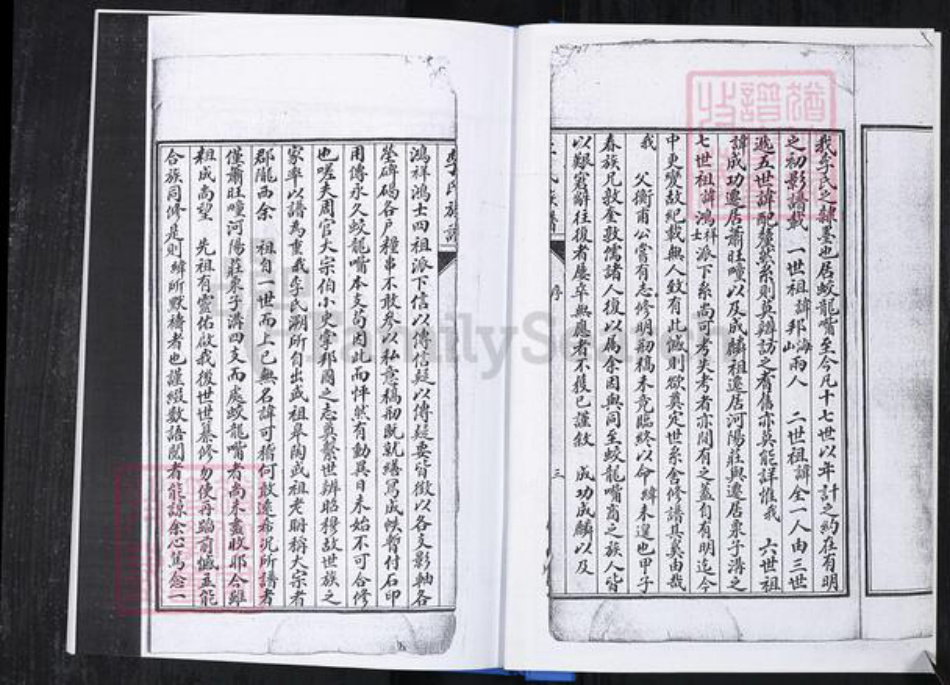 我李氏之隸墨也居蛟龍嘴至今凡十七世以年計之約在有明
之初影譜載 一世祖諱邦海山兩人 二世祖諱全一人由三世
遞五世諱配釐然系則莫辨訪之耆舊亦莫能詳惟我 六世祖
諱成功遷居蕭旺疃以及成麟祖遷居河陽莊與遷居栗子溝之
七世祖諱鴻祥士派下系尚可考失考者亦間有之蓋自有明迄今
中更變故紀載無人致有此憾則欲奠定世系舍修譜其奚由哉
我 父衡甫公嘗有志修明剏稿未竟臨終以命緯未遑也甲子
春族兄敦奎敦儒諸人復以属余因與同至蛟龍嘴商之族人皆
以艱窘辭往復者屢卒無應者不獲已謹敘 成功成麟以及
序
三
李氏族譜
鴻祥鴻士四祖派下信以傳信疑以傳疑要皆徵以各支影軸各
塋碑碣各户糧串不敢參以私意稿剏既就繕寫成帙暫付石印
用傳永久蛟龍嘴本支苟因此而怦然有動異日未始不可合修
也嗟夫周官大宗伯小史掌邦國之志奠繫世辨昭穆故世族之
家率以譜為重我李氏溯所自出或祖臯陶或祖老聃稱大宗者
郡隴西余 祖自一世而上已無名諱可稽何敢遠布況所譜者
僅蕭旺疃河陽莊栗子溝四支而處蛟龍嘴者尚未盡收耶今雖
粗成尚望 先祖有靈佑啟我後世世纂修勿使再蹈前憾並能
合族同修是則緯所默禱者也謹綴數語閱者能諒余心篤念一
FamilySearch